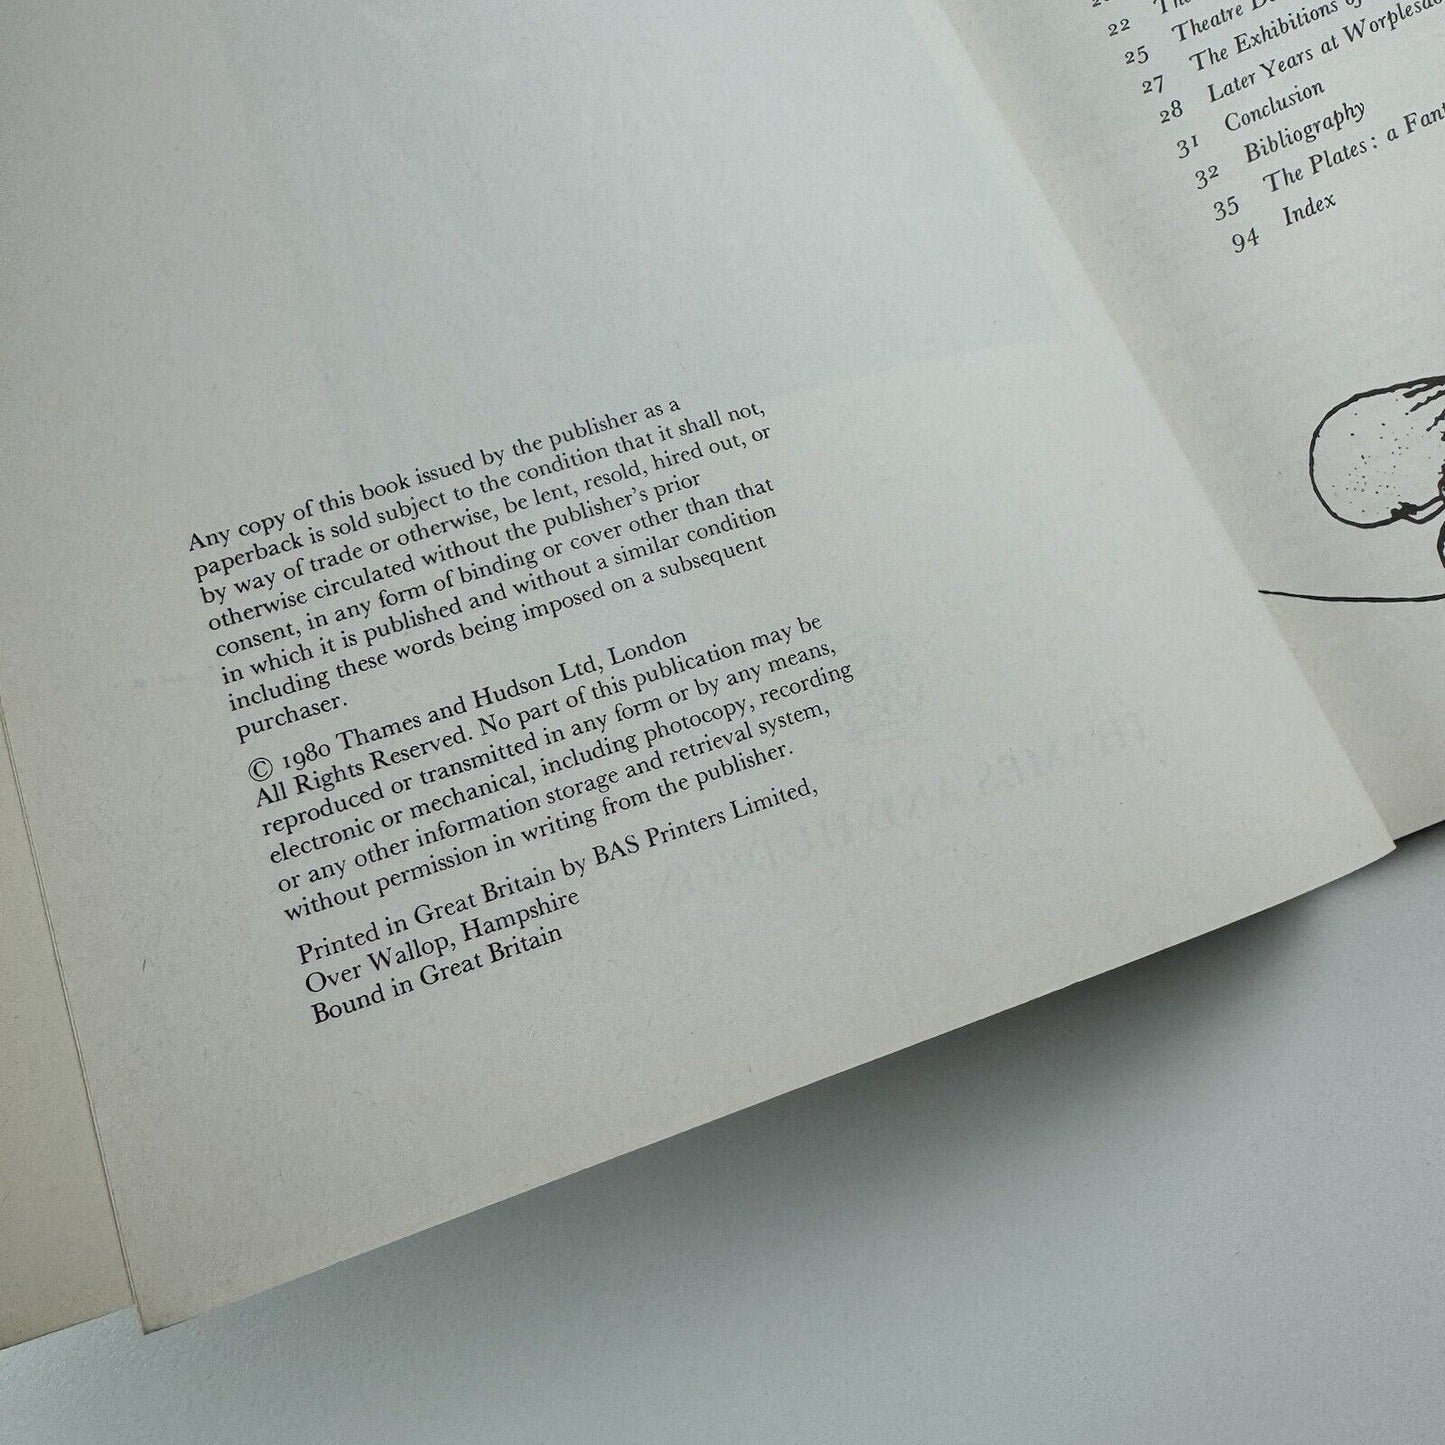 Any copy of this book issued by the publisher as a
paperback is sold subject to the condition that it shall not,
by way of trade or otherwise, be lent, resold, hired out, or
otherwise circulated without the publisher's prior
consent, in any form of binding or cover other than that
in which it is published and without a similar condition
including these words being imposed on a subsequent
purchaser.
© 1980 Thames and Hudson Ltd, London
All Rights Reserved. No part of this publication may be
reproduced or transmitted in any form or by any means,
electronic or mechanical, including photocopy, recording
or any other information storage and retrieval system,
without permission in writing from the publisher.
Printed in Great Britain by BAS Printers Limited,
Over Wallop, Hampshire
Bound in Great Britain
22
25 Theatre
27 The Exhibitions
28 Later Years at
31 Conclusion
32 Bibliography
35 The Plates: a
94 Index